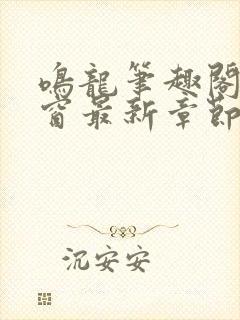 鳴龍筆趣閣
窗最新章節
沉安安